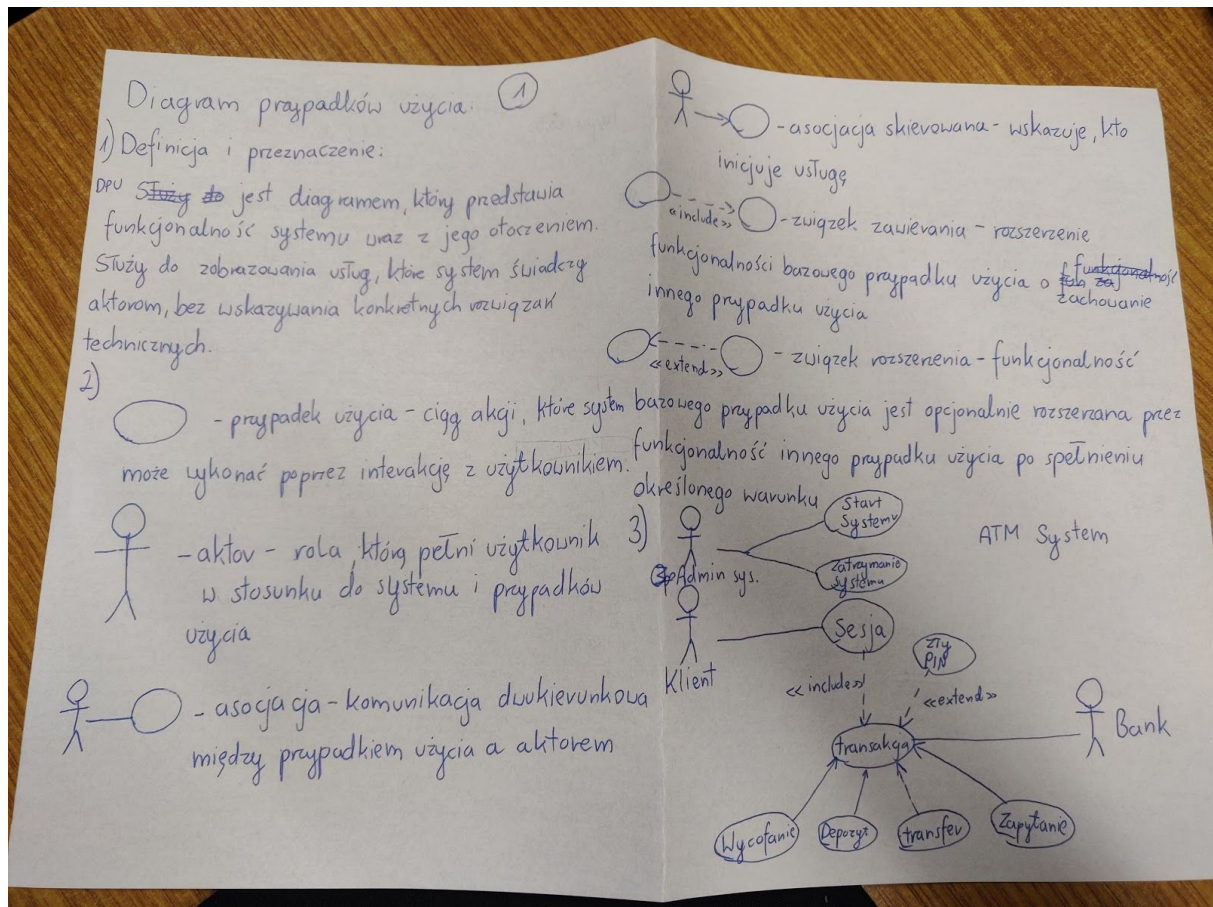 Diagram przypadków użycia: 1
1) Definicja i przeznaczenie:
DPU Służy do jest diagramem, który przedstawia
funkcjonalność systemu wraz z jego otoczeniem.
Służy do zobrazowania usług, które system świadczy
aktorom, bez wskazywania konkretnych rozwiązań
technicznych.
2)
- przypadek użycia - ciąg akcji, które system
może wykonać poprzez interakcję z użytkownikiem.
- aktor - rola, którą pełni użytkownik
w stosunku do systemu i przypadków
użycia
- asocjacja - komunikacja dwukierunkowa
między przypadkiem użycia a aktorem
- asocjacja skierowana - wskazuje, kto
inicjuje usługę
«include» - związek zawierania - rozszerzenie
funkcjonalności bazowego przypadku użycia o funkcjonalność
zachowanie
innego przypadku użycia
«extend» - związek rozszerzenia - funkcjonalność
bazowego przypadku użycia jest opcjonalnie rozszerzana przez
funkcjonalność innego przypadku użycia po spełnieniu
określonego warunku
3)
Start
Systemu
ATM System
Zatrzymanie
Systemu
Admin sys.
Sesja
Zły
PIN
Klient
«include»
«extend»
transakcja
Bank
Wycofanie
Depozyt
transfer
Zapytanie